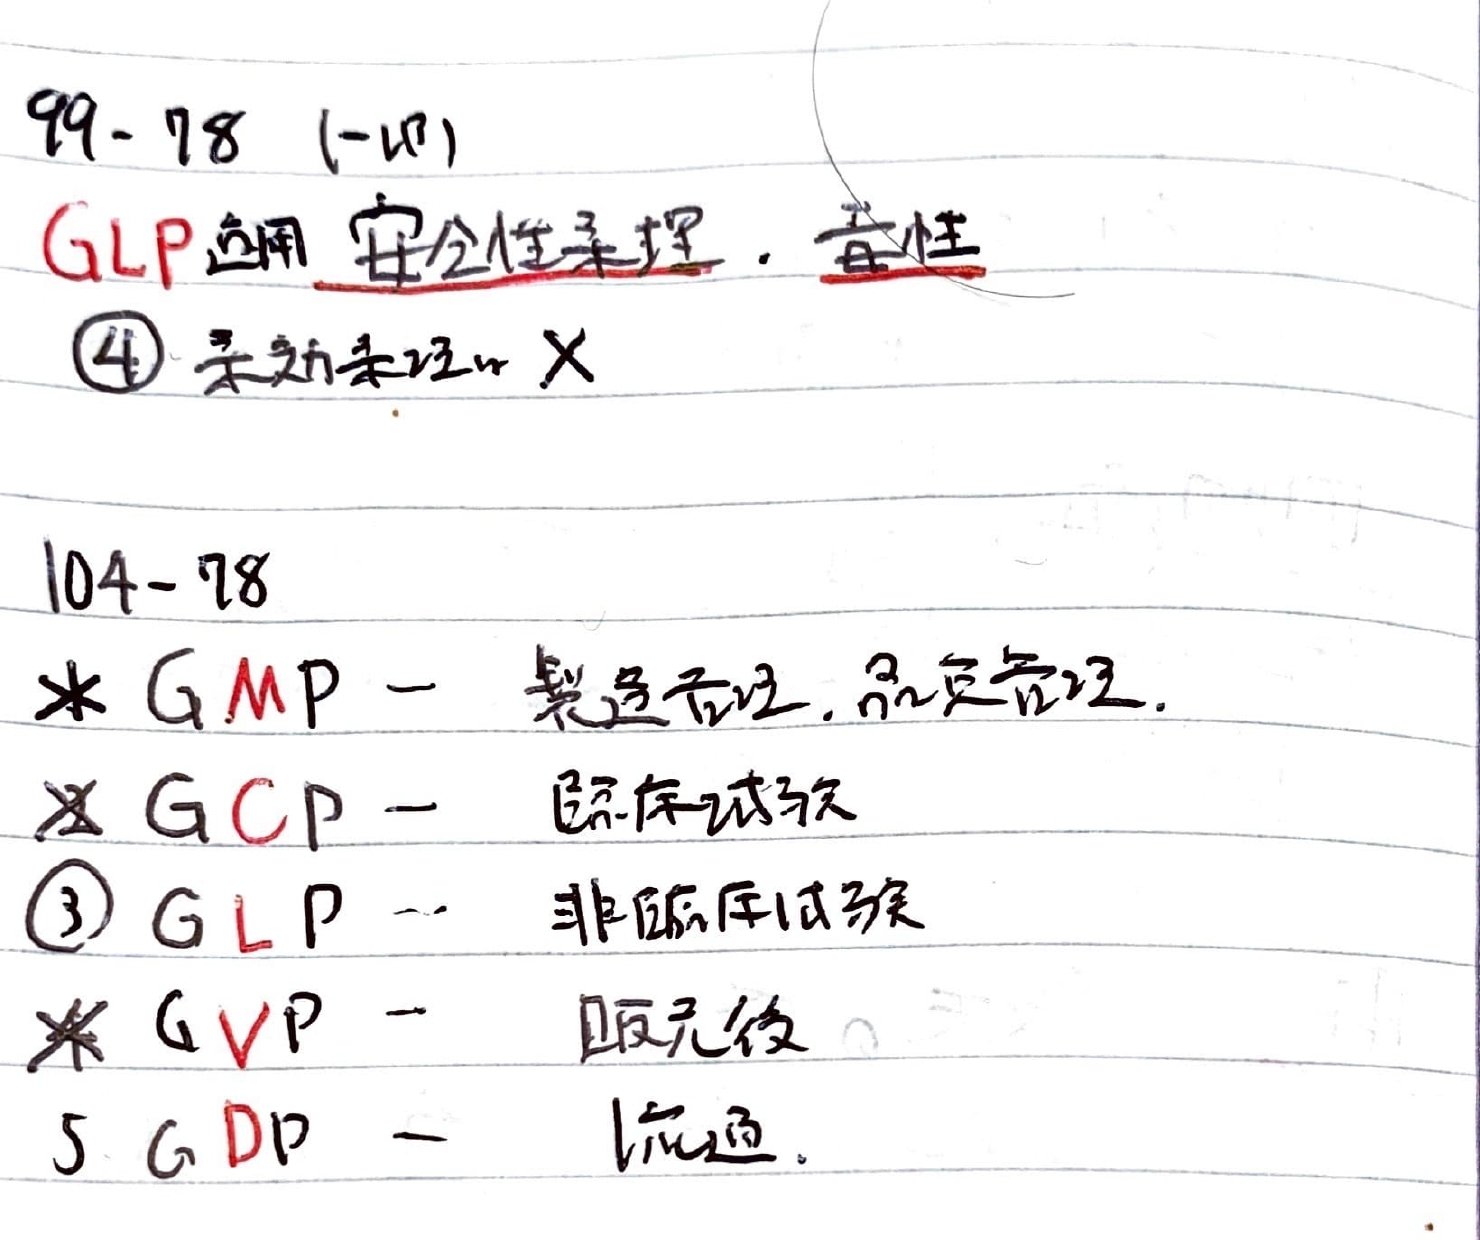 99-78 (一部)
GLP適用 安全性薬理・毒性
④ 薬効薬理は ×
104-78
GMP － 製造管理、品質管理.
GCP － 臨床試験
③ GLP － 非臨床試験
GVP － 販売後
5 GDP － 流通.